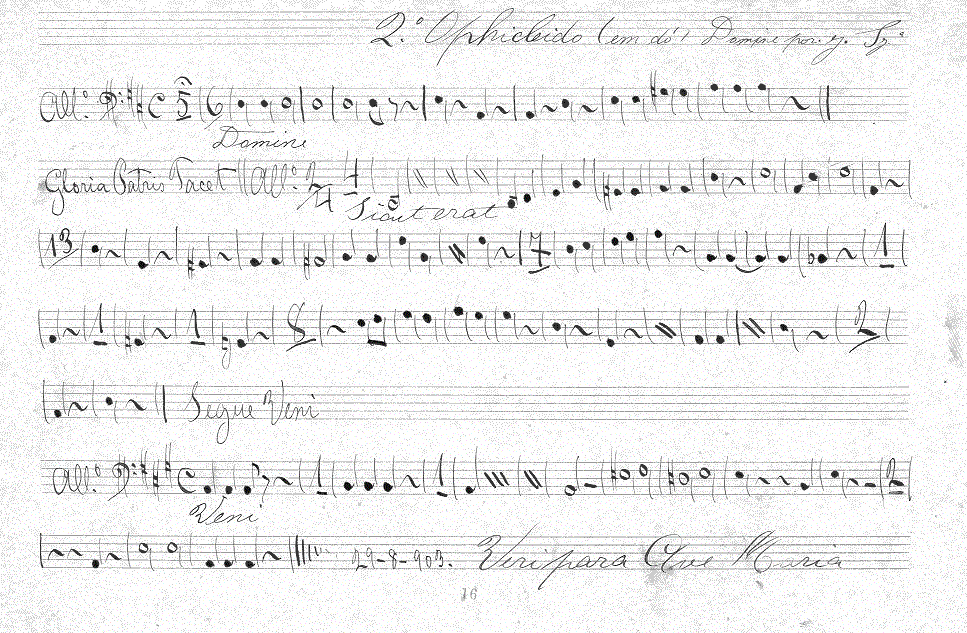 2.º Ophicleido (em dó) Domine por
All.º 5 6
Domine
Gloria Patris Tacet All.º 2 4
Sicut erat
13 7 1
1 1 8 2
Segue Veni
All.º 1 1 2
Veni
29-8-903. Veni para Ave Maria
16